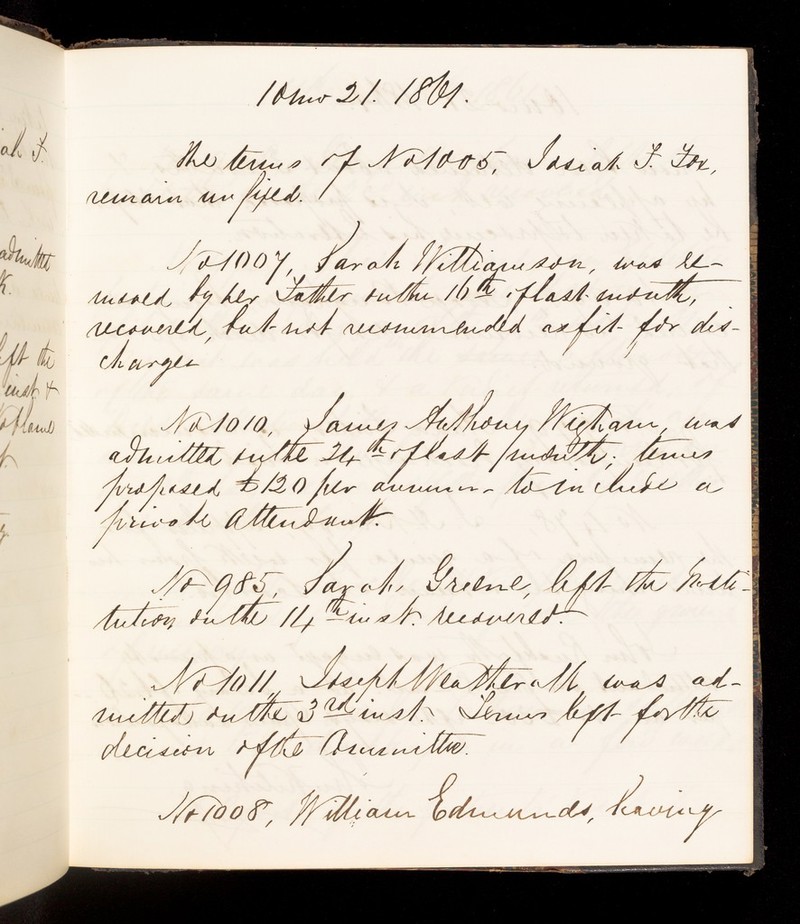 ah F.
admitted
K.
left the
inst. &
10 mo 21. 1861.
The terms of No 1005, Josiah F. Fox,
remain unfixed.
No 1007, Sarah Williamson, was re-
moved by her Father on the 16th of last month,
recovered, but not recommended as fit for dis-
charge
No 1010, James Anthony Wigham, was
admitted on the 24th of last month; terms
proposed £120 per annum - to include a
private Attendant.
No 985, Sarah Greene, left the Insti-
tution on the 14th inst. recovered.
No 1011, Joseph Weatherall, was ad-
mitted on the 3rd inst. Terms left for the
decision of the Committee.
No 1008, William Edmunds, having